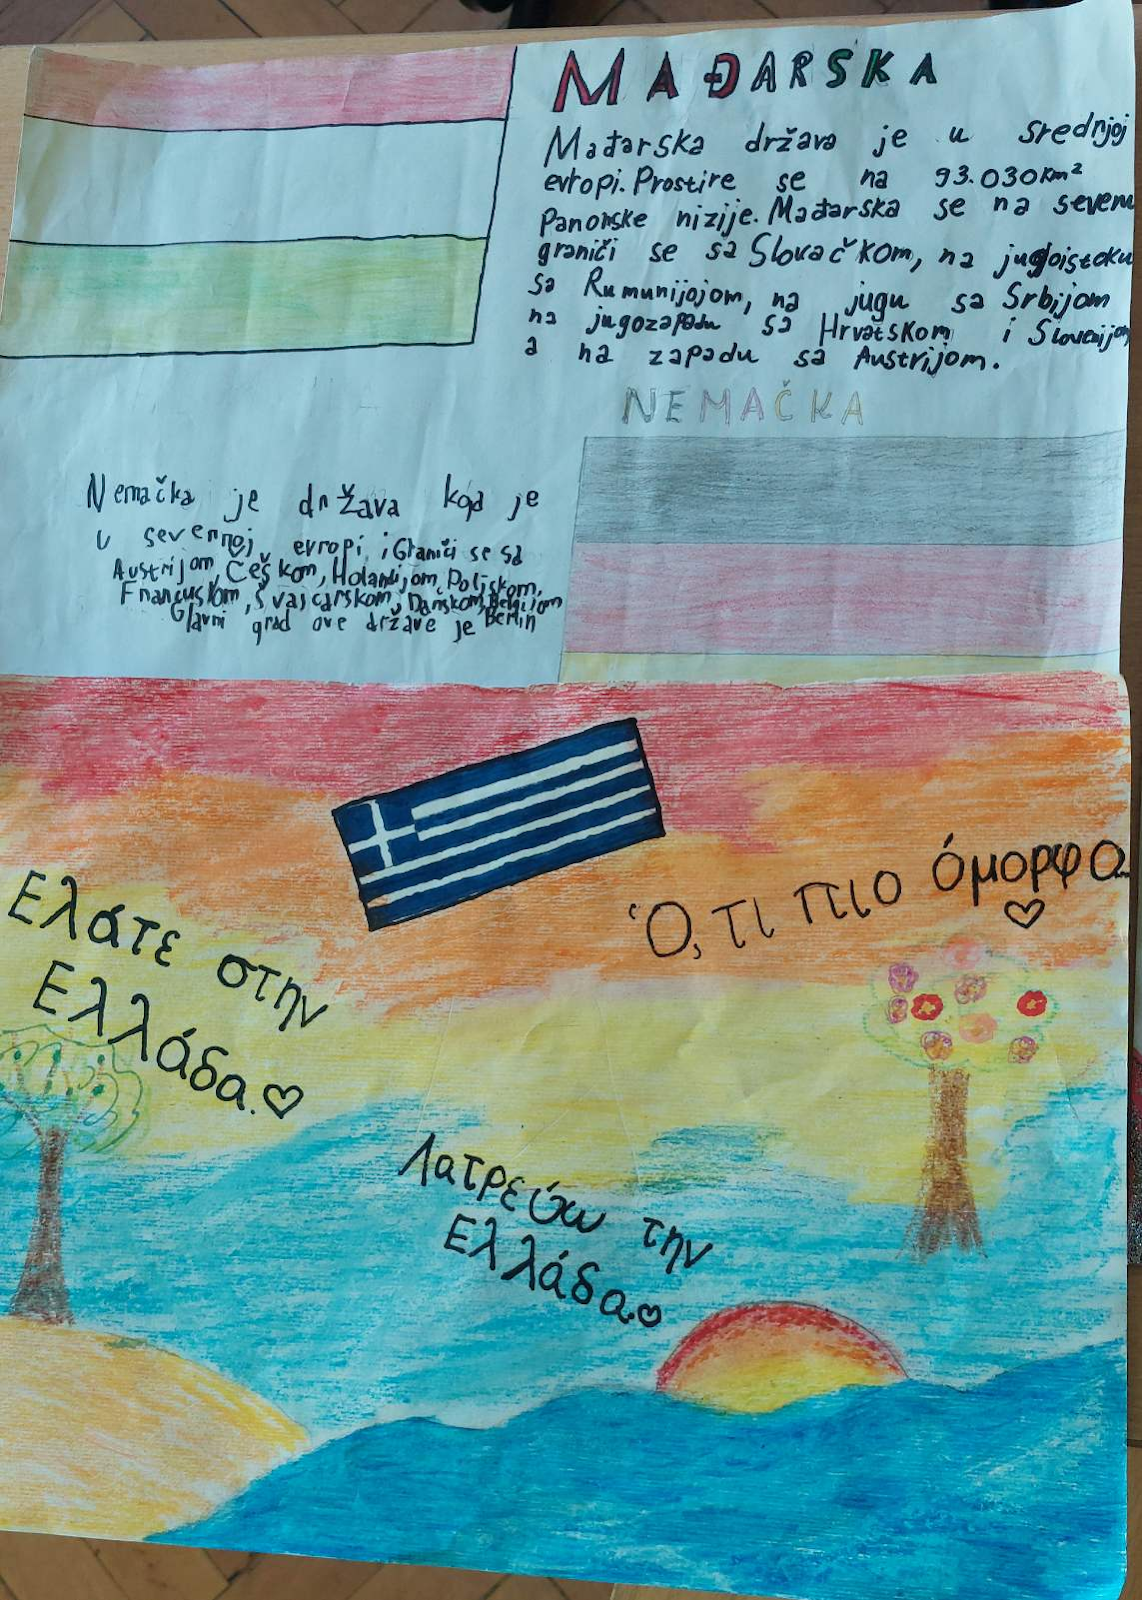 MAĐARSKA
Mađarska država je u srednjoj
evropi. Prostire se na 93.030km²
Panonske nizije. Mađarska se na severu
graniči se sa Slovačkom, na jugoistoku
sa Rumunijojom, na jugu sa Srbijom
na jugozapadu sa Hrvatskom i Slovenijom
a na zapadu sa Austrijom.
NEMAČKA
Nemačka je država koja je
u severnoj evropi i Graniči se sa
Austrijom, Češkom, Holandijom, Poljskom,
Francuskom, Švajcarskom, Danskom, Belgijom
Glavni grad ove države je Berlin
Ελάτε στην
Ελλάδα.
Ό,τι πιο όμορφο
Λατρεύω την
Ελλάδα